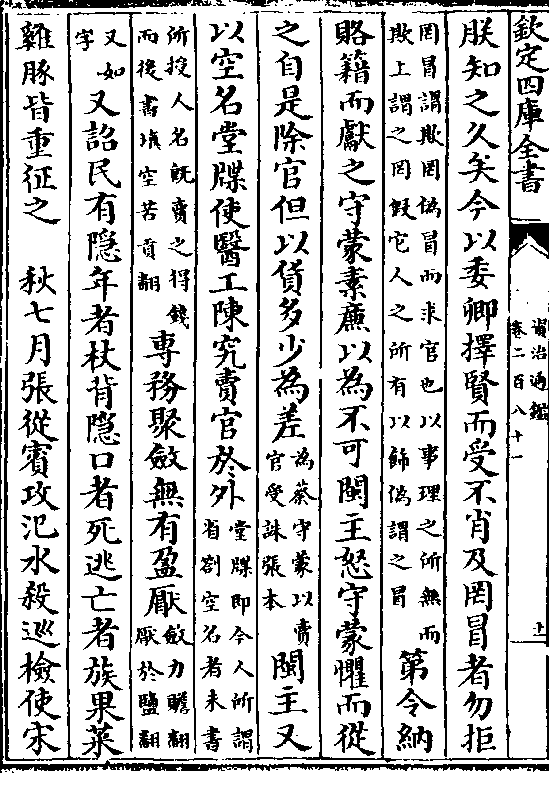 欽定四庫全書
資治通鑑
卷二百八十一
上
朕知之久矣今以委卿擇賢而受不肖及罔冒者勿拒
罔冒謂欺罔偽冒而求官也以事理之所無而
欺上謂之罔假它人之所有以飾偽謂之冒
第令納
賂籍而獻之守蒙素廉以為不可閩主怒守蒙懼而從
之自是除官但以貨多少為差
為蔡守蒙以賣
官受誅張本
閩主又
以空名堂牒使醫工陳究賣官於外
堂牒即今人所謂
省劄空名者未書
所授人名既賣之得錢
而後書填空苦貢翻
專務聚斂無有盈厭
斂力贍翻
厭於鹽翻
又如
字
又詔民有隱年者杖背隱口者死逃亡者族果菜
雞豚皆重征之 秋七月張從賓攻汜水殺巡檢使宋